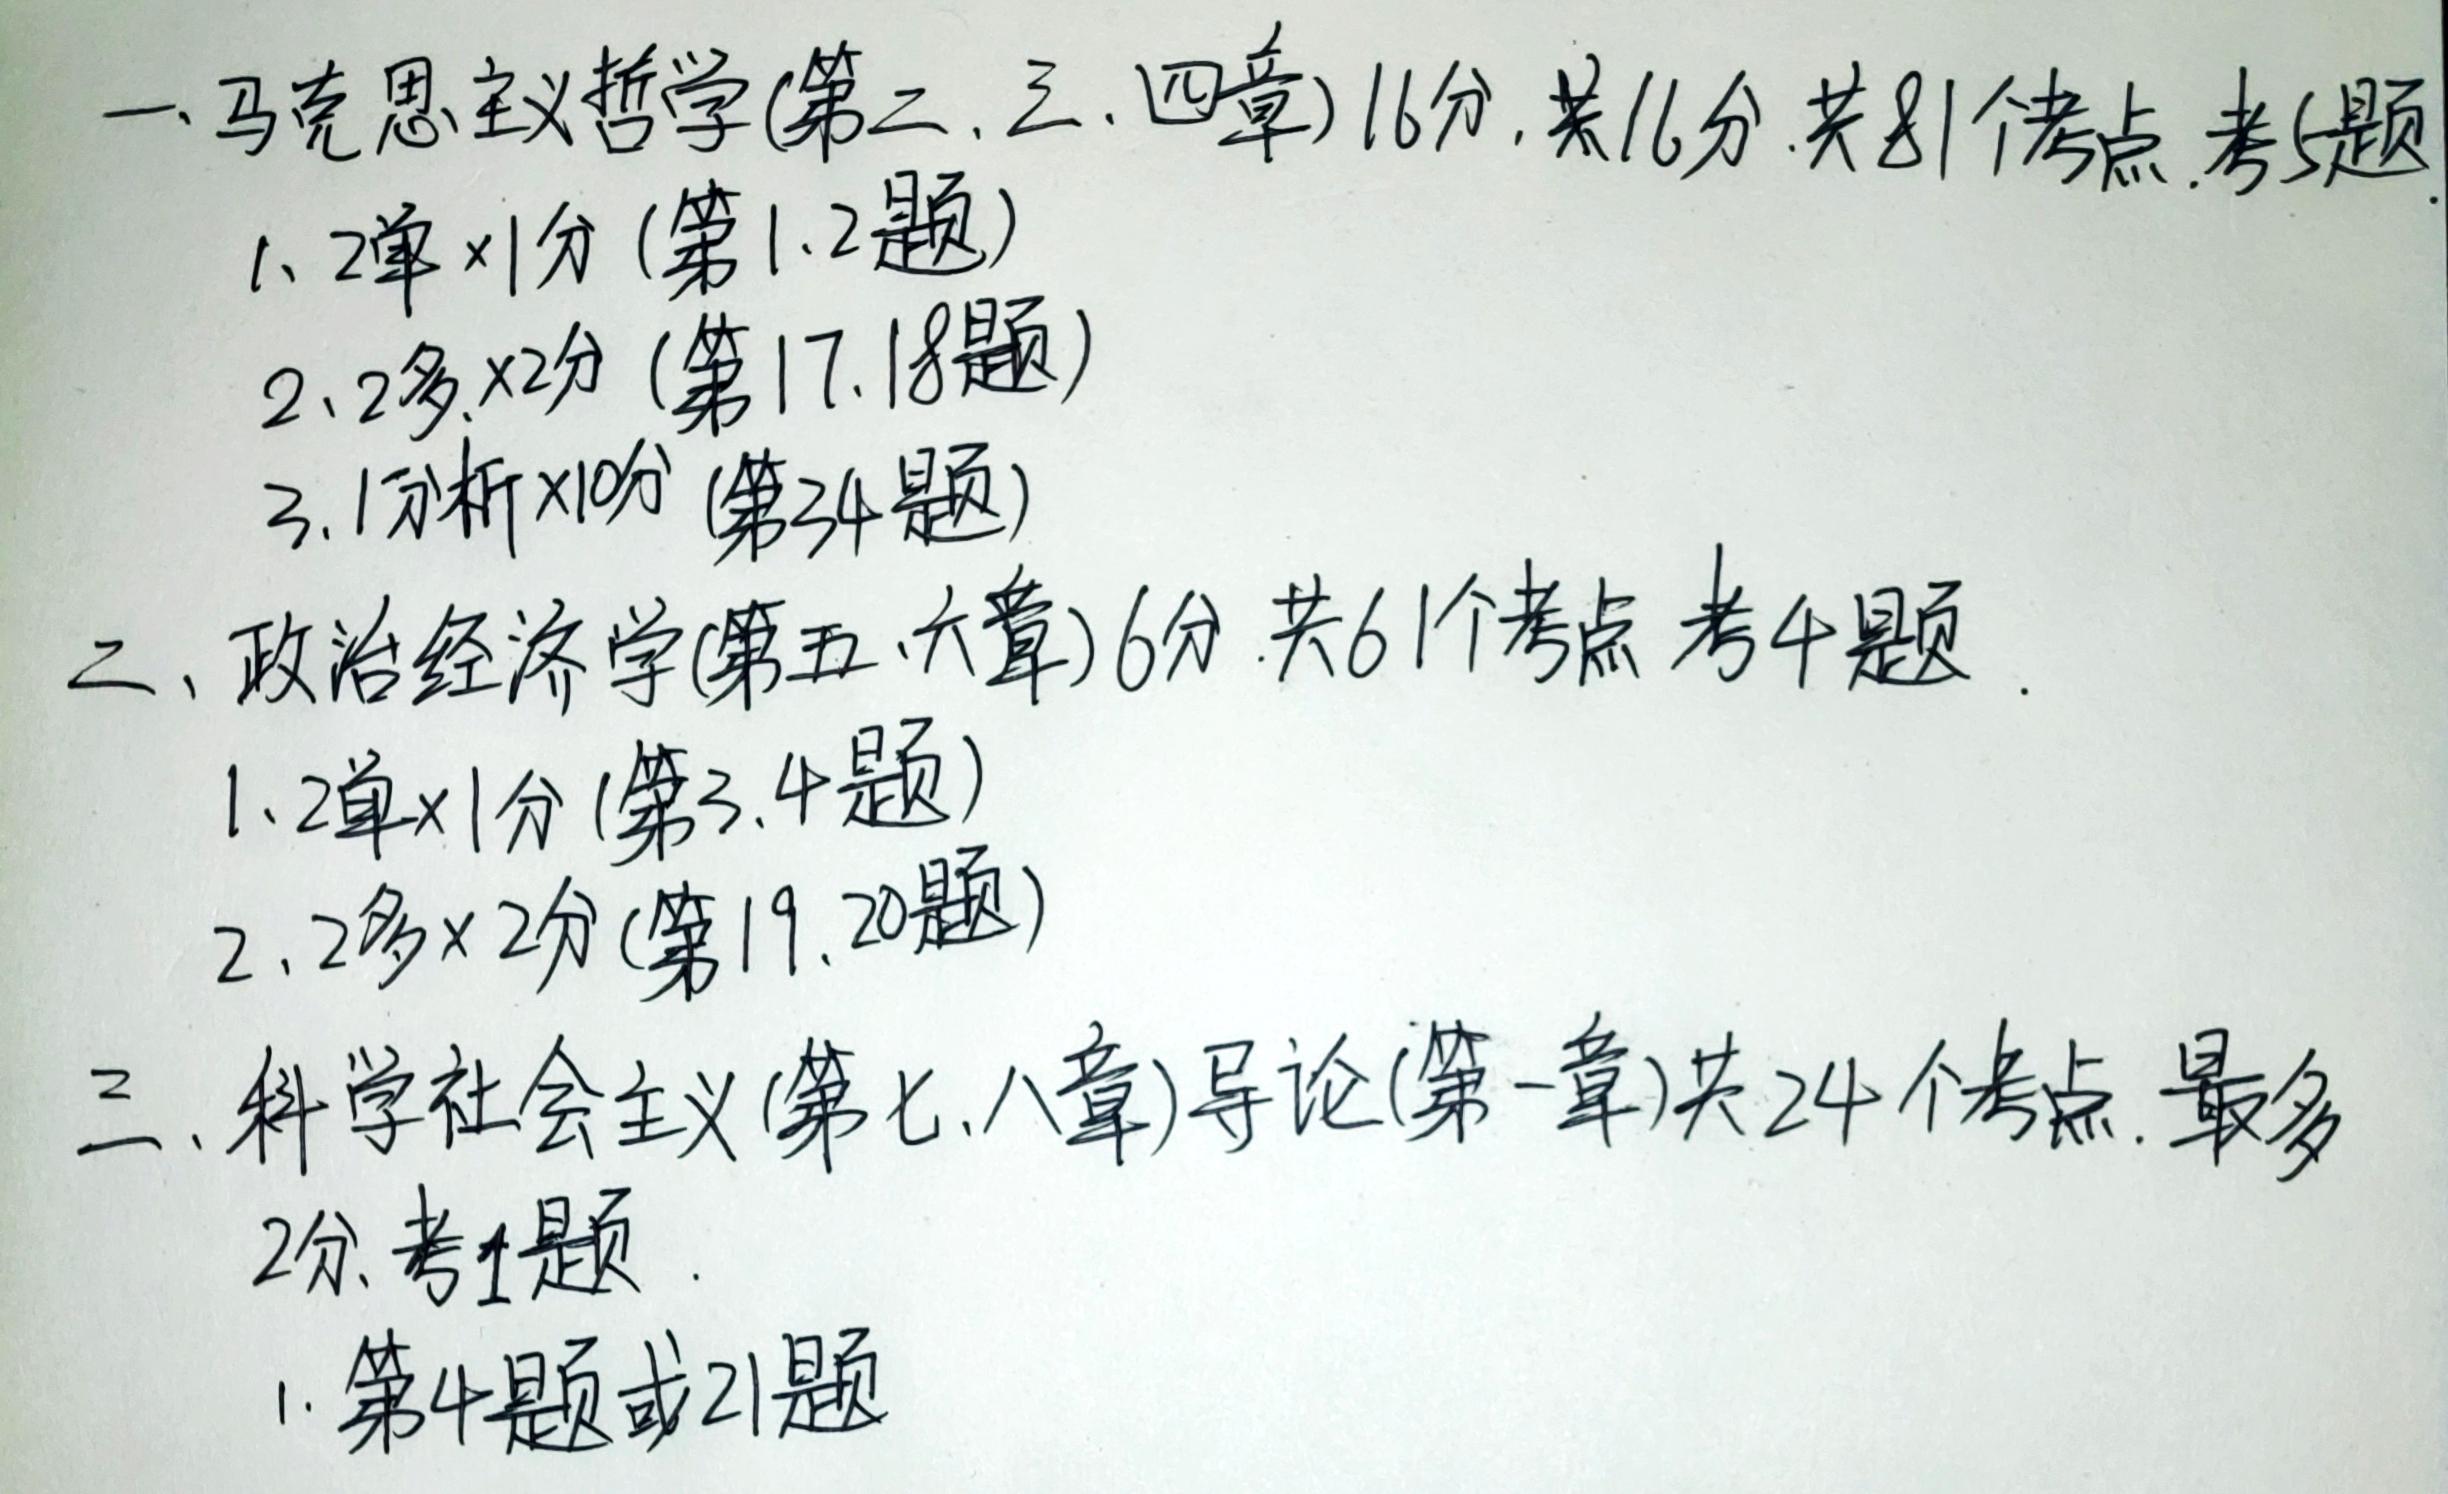 一、马克思主义哲学(第二、三、四章)16分,共16分.共81个考点.考5题.
1、2单×1分(第1、2题)
2、2多×2分(第17、18题)
3、1分析×10分(第34题)
二、政治经济学(第五、六章)6分.共61个考点 考4题.
1、2单×1分(第3、4题)
2、2多×2分(第19、20题)
三、科学社会主义(第七、八章)导论(第一章)共24个考点.最多
2分、考1题.
1.第4题或21题